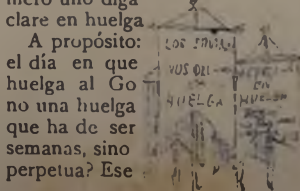 mero uno diga
clare en huelga
A propósito:
el día en que
huelga al Go
no una huelga
que ha de ser
semanas, sino
perpetua? Ese
LOS
VOS DEL
HUELGA
EN
HUELGA